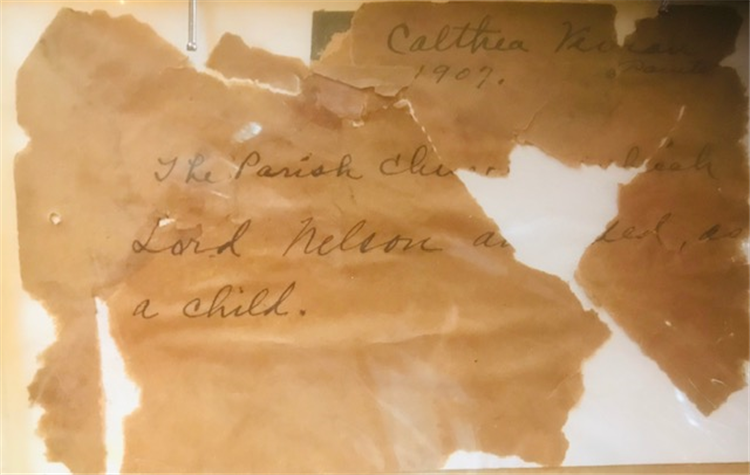 Calthea Vivian
1907.
The Parish Chu hich
Lord Nelson a ded, as
a child.